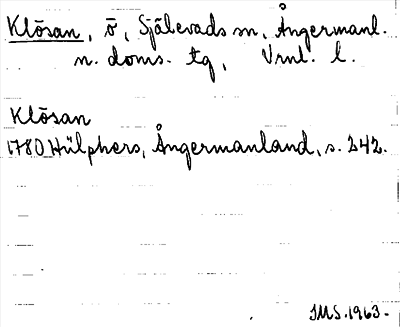 Klösan, ö, Själevads sn, Ångermanl.
n. doms. tg, Vrnl. l.
Klösan
1780 Hülphers, Ångermanland, s. 242.
IMS. 1963.